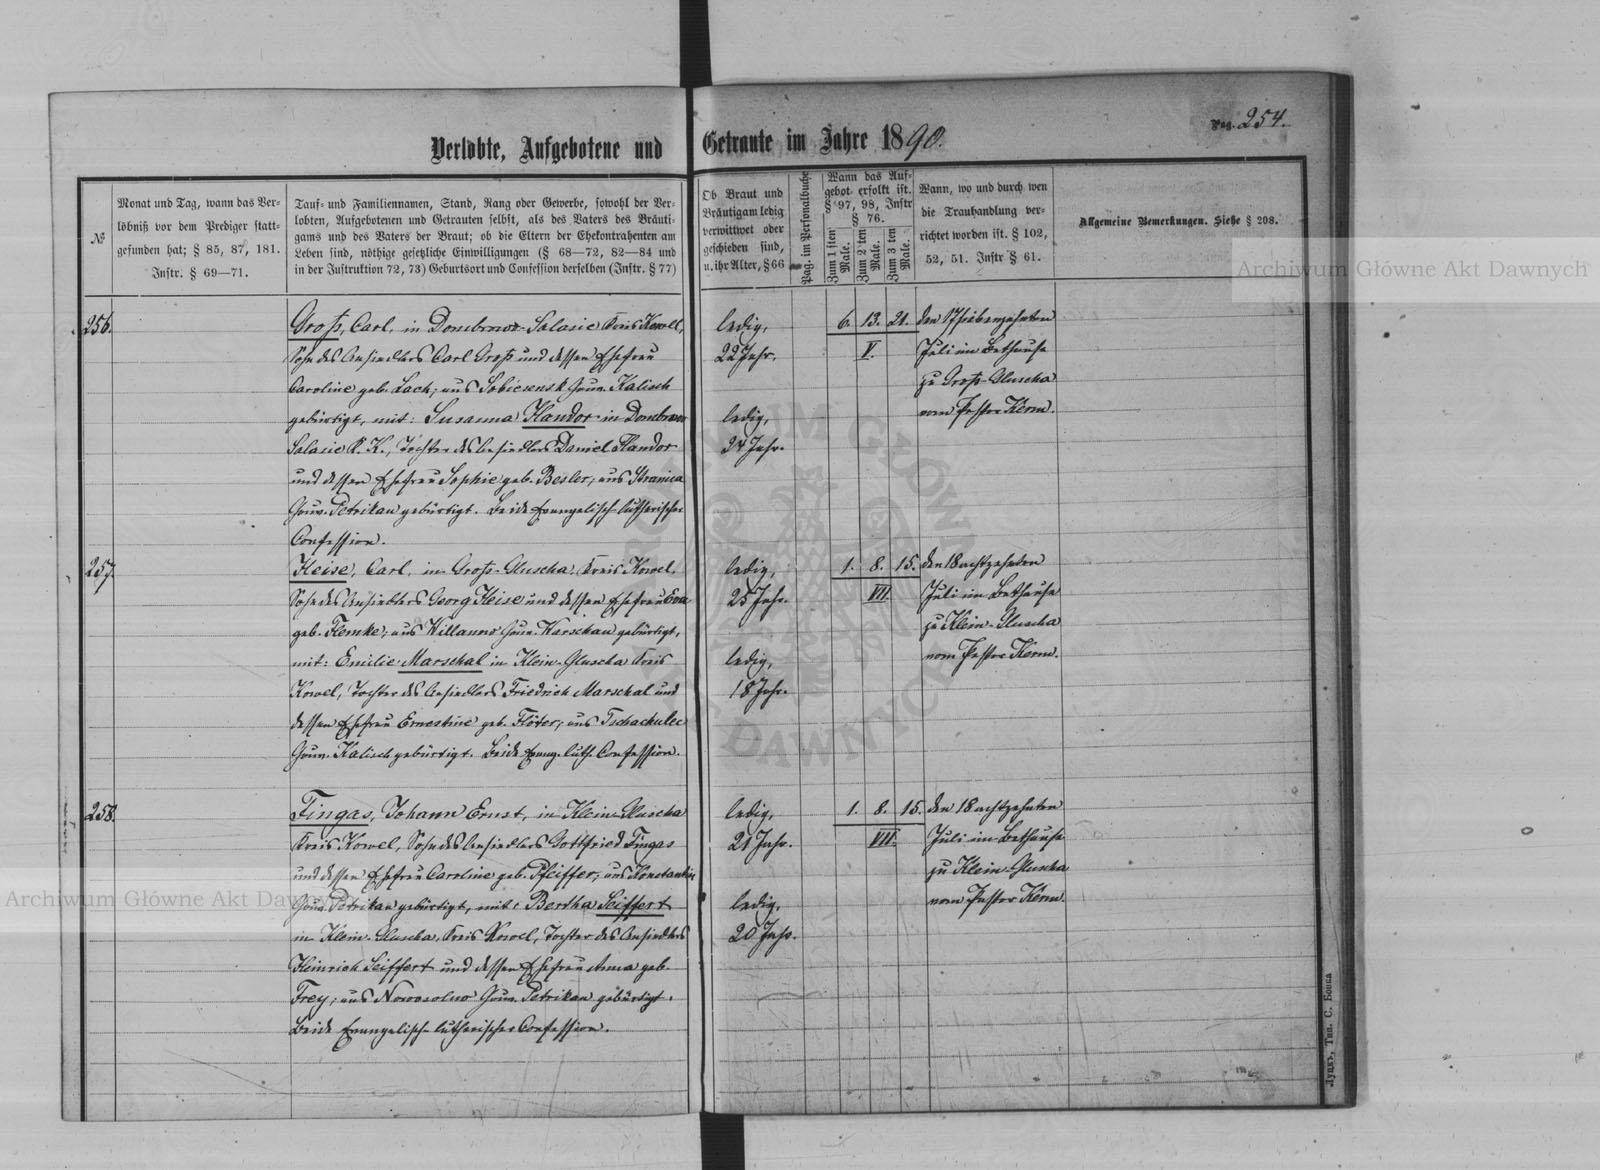 Pag. 254.
Verlobte, Aufgebotene und Getraute im Jahre 1890.
№
Monat und Tag, wann das Ver-
löbniß vor dem Prediger statt-
gefunden hat; § 85, 87, 181.
Instr. § 69—71.
Tauf- und Familiennamen, Stand, Rang oder Gewerbe, sowohl der Ver-
lobten, Aufgebotenen und Getrauten selbst, als des Vaters des Bräuti-
gams und des Vaters der Braut; ob die Eltern der Ehekontrahenten am
Leben sind, nöthige gesetzliche Einwilligungen (§ 68—72, 82—84 und
in der Justruktion 72, 73) Geburtsort und Confession derselben (Instr. § 77)
Ob Braut und
Bräutigam ledig
verwittwet oder
geschieden sind,
u. ihr Alter, § 66
Pag. im Personalbuche
Wann das Auf-
gebot erfolkt ist.
§ 97, 98, Instr
§ 76.
Zum 1 sten Male.
Zum 2 ten Male.
Zum 3 ten Male.
Wann, wo und durch wen
die Trauhandlung ver-
richtet worden ist. § 102,
52, 51. Instr § 61.
Allgemeine Bemerkungen. Siehe § 208.
Archiwum Główne Akt Dawnych
256.
Groß, Carl, in Dombrowo-Salasie Kreis Kowel,
Sohn des Ansiedlers Carl Groß und dessen Ehefrau
Caroline geb. Lach; aus Sobiesensk Gouv. Kalisch
gebürtigt, mit: Susanna Handor in Dombrowo
Salasie K. K., Tochter des Ansiedlers Daniel Handor
und dessen Ehefrau Sophie geb. Besler, aus
Gouv. Petrikau gebürtigt. Beide Evangelisch-lutherischer
Confession.
ledig,
22 Jahr.
ledig,
24 Jahr.
6. 13. 21.
V.
den 17 siebenzehnten
Juli im Bethause
zu Groß-Gluscha
vom Pastor Kerm.
257.
Heise, Carl, in Groß-Gluscha, Kreis Kowel,
Sohn des Ansiedlers Georg Heise und dessen Ehefrau Eva
geb. Klemke, aus Willanow Gouv. Warschau gebürtigt,
mit: Emilie Marschal in Klein-Gluscha Kreis
Kowel, Tochter des Ansiedlers Friedrich Marschal und
dessen Ehefrau Ernestine geb. Flöter, aus Tschachulec
Gouv. Kalisch gebürtigt. Beide Evang. luth. Confession.
ledig,
25 Jahr.
ledig,
18 Jahr.
1. 8. 15.
VII.
den 18 achtzehnten
Juli im Bethause
zu Klein-Gluscha
vom Pastor Kerm.
258.
Fingas, Johann Ernst, in Klein-Gluscha
Kreis Kowel, Sohn des Ansiedlers Gottfried Fingas
und dessen Ehefrau Caroline geb. Pfeiffer, aus Konstantin
Gouv. Petrikau gebürtigt, mit: Bertha Seiffert
in Klein-Gluscha, Kreis Kowel, Tochter des Ansiedlers
Heinrich Seiffert und dessen Ehefrau Anna geb.
Frey, aus Nowosolno Gouv. Petrikau gebürtigt.
Beide Evangelisch-lutherischer Confession.
ledig,
21 Jahr.
ledig,
20 Jahr.
1. 8. 15.
VII.
den 18 achtzehnten
Juli im Bethause
zu Klein-Gluscha
vom Pastor Kerm.
Archiwum Główne Akt Dawnych
Луцкъ, Тип. С. Бонка